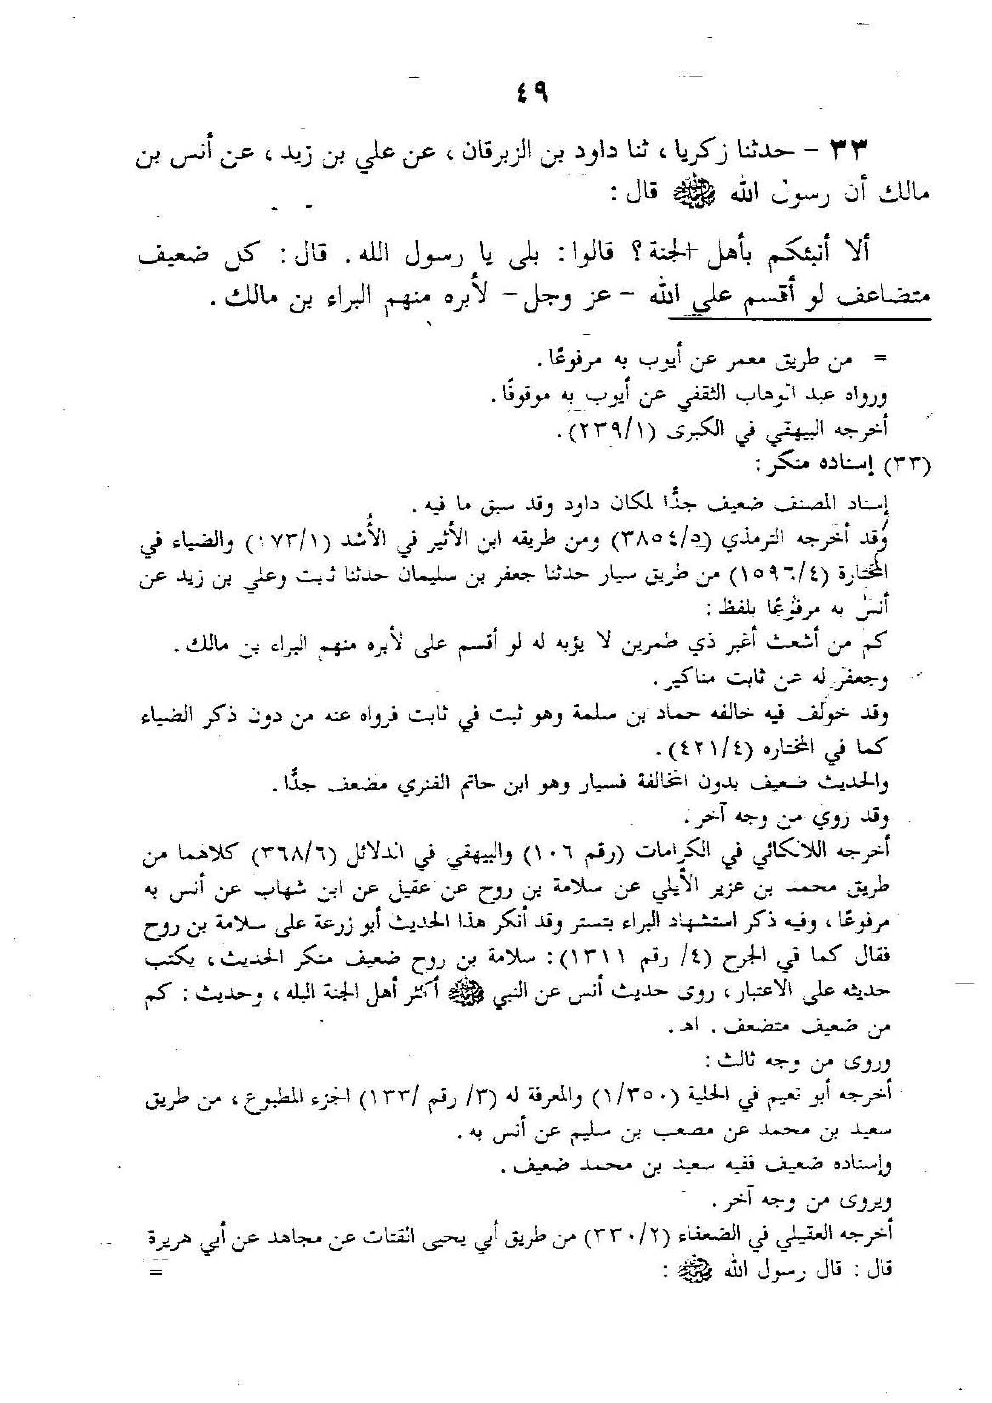 ٤٩
٣٣ - حدثنا زكريا ، ثنا داود بن الزبرقان ، عن علي بن زيد ، عن أنس بن
مالك أن رسول الله ﷺ قال :
ألا أنبئكم بأهل الجنة ؟ قالوا : بلى يا رسول الله . قال : كل ضعيف
متضاعف لو أقسم على الله - عز وجل - لأبره منهم البراء بن مالك .
= من طريق معمر عن أيوب به مرفوعًا .
ورواه عبد الوهاب الثقفي عن أيوب به موقوفًا .
أخرجه البيهقي في الكبرى (٢٣٩/١) .
(٣٣) إسناده منكر :
إسناد المصنف ضعيف جدًّا لمكان داود وقد سبق ما فيه .
وقد أخرجه الترمذي (٣٨٥٤/٥) ومن طريقه ابن الأثير في الأُسُد (١٧٣/١) والضياء في
المختارة (١٥٩٦/٤) من طريق سيار حدثنا جعفر بن سليمان حدثنا ثابت وعلي بن زيد عن
أنس به مرفوعًا بلفظ :
كم من أشعث أغبر ذي طمرين لا يؤبه له لو أقسم على لأبره منهم البراء بن مالك .
وجعفر له عن ثابت مناكير .
وقد خولف فيه خالفه حماد بن سلمة وهو ثبت في ثابت فرواه عنه من دون ذكر الضياء
كما في المختاره (٤٢١/٤) .
والحديث ضعيف بدون المخالفة فسيار وهو ابن حاتم الفنري مضعف جدًّا .
وقد روي من وجه آخر .
أخرجه اللالكائي في الكرامات (رقم ١٠٦) والبيهقي في الدلائل (٣٦٨/٦) كلاهما من
طريق محمد بن عزير الأيلي عن سلامة بن روح عن عقيل عن ابن شهاب عن أنس به
مرفوعًا ، وفيه ذكر استشهاد البراء بتستر وقد أنكر هذا الحديث أبو زرعة على سلامة بن روح
فقال كما في الجرح (٤/ رقم ١٣١١) : سلامة بن روح ضعيف منكر الحديث ، يكتب
حديثه على الاعتبار ، روى حديث أنس عن النبي ﷺ أكثر أهل الجنة البله ، وحديث : كم
من ضعيف متضعف . اهـ .
وروى من وجه ثالث :
أخرجه أبو نعيم في الحلية (١/٣٥٠) والمعرفة له (٣/ رقم /١٣٣) الجزء المطبوع ، من طريق
سعيد بن محمد عن مصعب بن سليم عن أنس به .
وإسناده ضعيف ففيه سعيد بن محمد ضعيف .
ويروى من وجه آخر .
أخرجه العقيلي في الضعفاء (٣٣٠/٢) من طريق أبي يحيى القتات عن مجاهد عن أبي هريرة
قال : قال رسول الله ﷺ : =